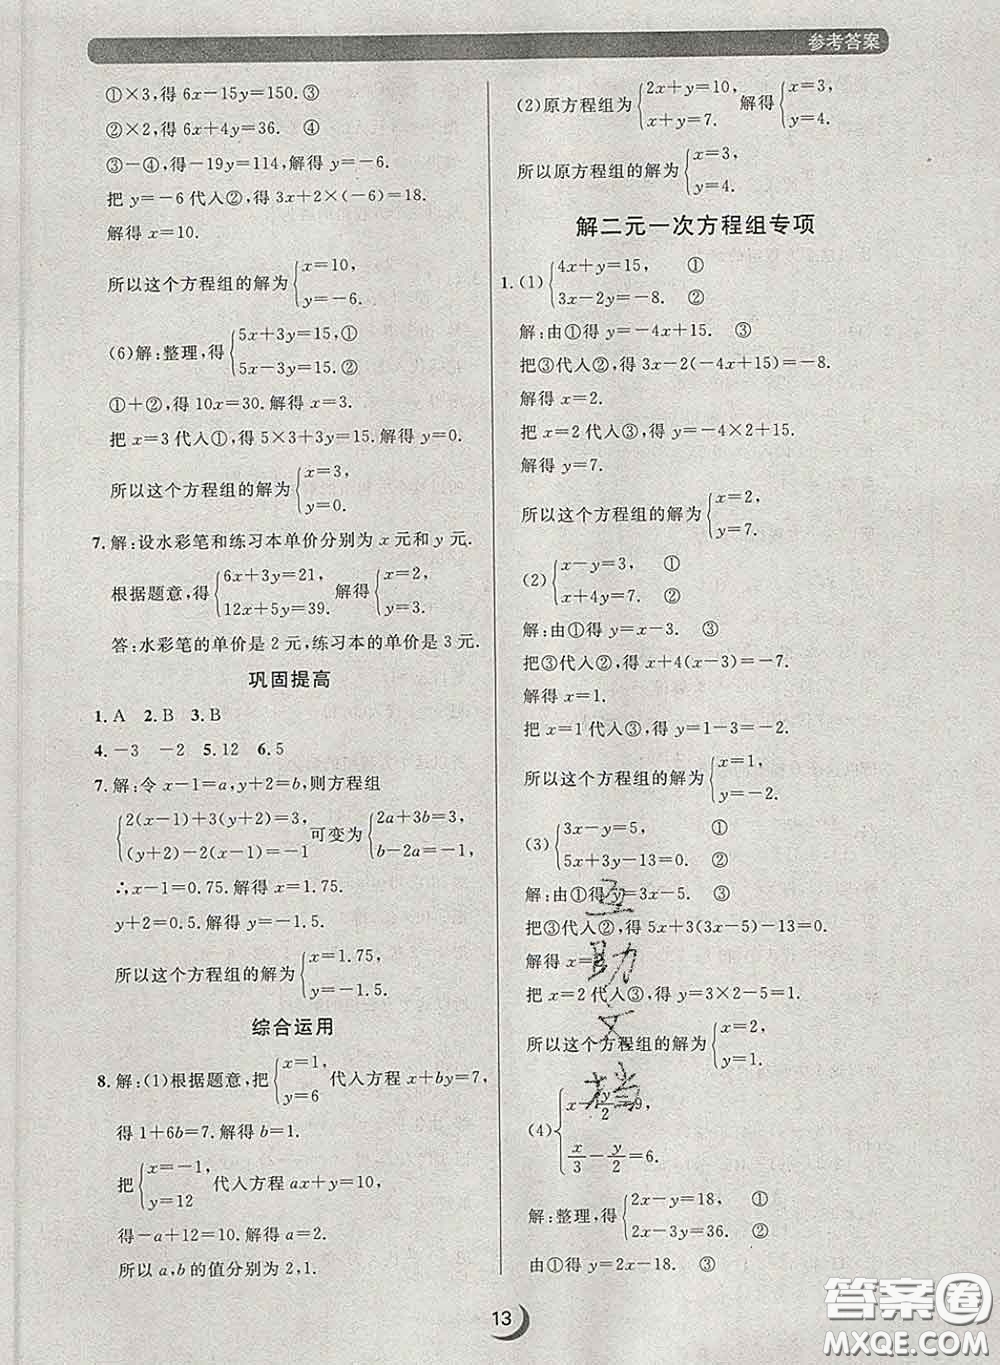 参考答案
①×3,得 6x-15y=150. ③
②×2,得 6x+4y=36. ④
③-④,得-19y=114,解得 y=-6.
把 y=-6 代入②,得 3x+2×(-6)=18.
解得 x=10.
所以这个方程组的解为{x=10,
y=-6.
(6)解:整理,得{5x+3y=15,①
5x-3y=15.②
①+②,得 10x=30.解得 x=3.
把 x=3 代入①,得 5×3+3y=15.解得 y=0.
所以这个方程组的解为{x=3,
y=0.
7.解:设水彩笔和练习本单价分别为 x 元和 y 元.
根据题意,得{6x+3y=21, 解得{x=2,
12x+5y=39. y=3.
答:水彩笔的单价是 2 元,练习本的单价是 3 元.
巩固提高
1.A 2.B 3.B
4.-3 -2 5.12 6.5
7.解:令 x-1=a,y+2=b,则方程组
{2(x-1)+3(y+2)=3, 可变为{2a+3b=3,
(y+2)-2(x-1)=-1 b-2a=-1,
∴x-1=0.75.解得 x=1.75.
y+2=0.5.解得 y=-1.5.
所以这个方程组的解为{x=1.75,
y=-1.5.
综合运用
8.解:(1)根据题意,把{x=1, 代入方程 x+by=7,
y=6
得 1+6b=7.解得 b=1.
把{x=-1, 代入方程 ax+y=10,
y=12
得-a+12=10.解得 a=2.
所以 a,b 的值分别为 2,1.
(2)原方程组为{2x+y=10, 解得{x=3,
x+y=7. y=4.
所以原方程组的解为{x=3,
y=4.
解二元一次方程组专项
1.(1){4x+y=15, ①
3x-2y=-8. ②
解:由①得 y=-4x+15. ③
把③代入②,得 3x-2(-4x+15)=-8.
解得 x=2.
把 x=2 代入③,得 y=-4×2+15.
解得 y=7.
所以这个方程组的解为{x=2,
y=7.
(2){x-y=3, ①
x+4y=-7. ②
解:由①得 y=x-3. ③
把③代入②,得 x+4(x-3)=-7.
解得 x=1.
把 x=1 代入③,得 y=1-3=-2.
所以这个方程组的解为{x=1,
y=-2.
(3){3x-y=5, ①
5x+3y-13=0. ②
解:由①得 y=3x-5. ③
把③代入②,得 5x+3(3x-5)-13=0.
解得 x=2.
把 x=2 代入③,得 y=3×2-5=1.
所以这个方程组的解为{x=2,
y=1.
(4){x-y/2=9,
x/3-y/2=6.
解:整理,得{2x-y=18, ①
2x-3y=36. ②
由①得 y=2x-18. ③
互助文档
13
答案圈
MXQE.COM